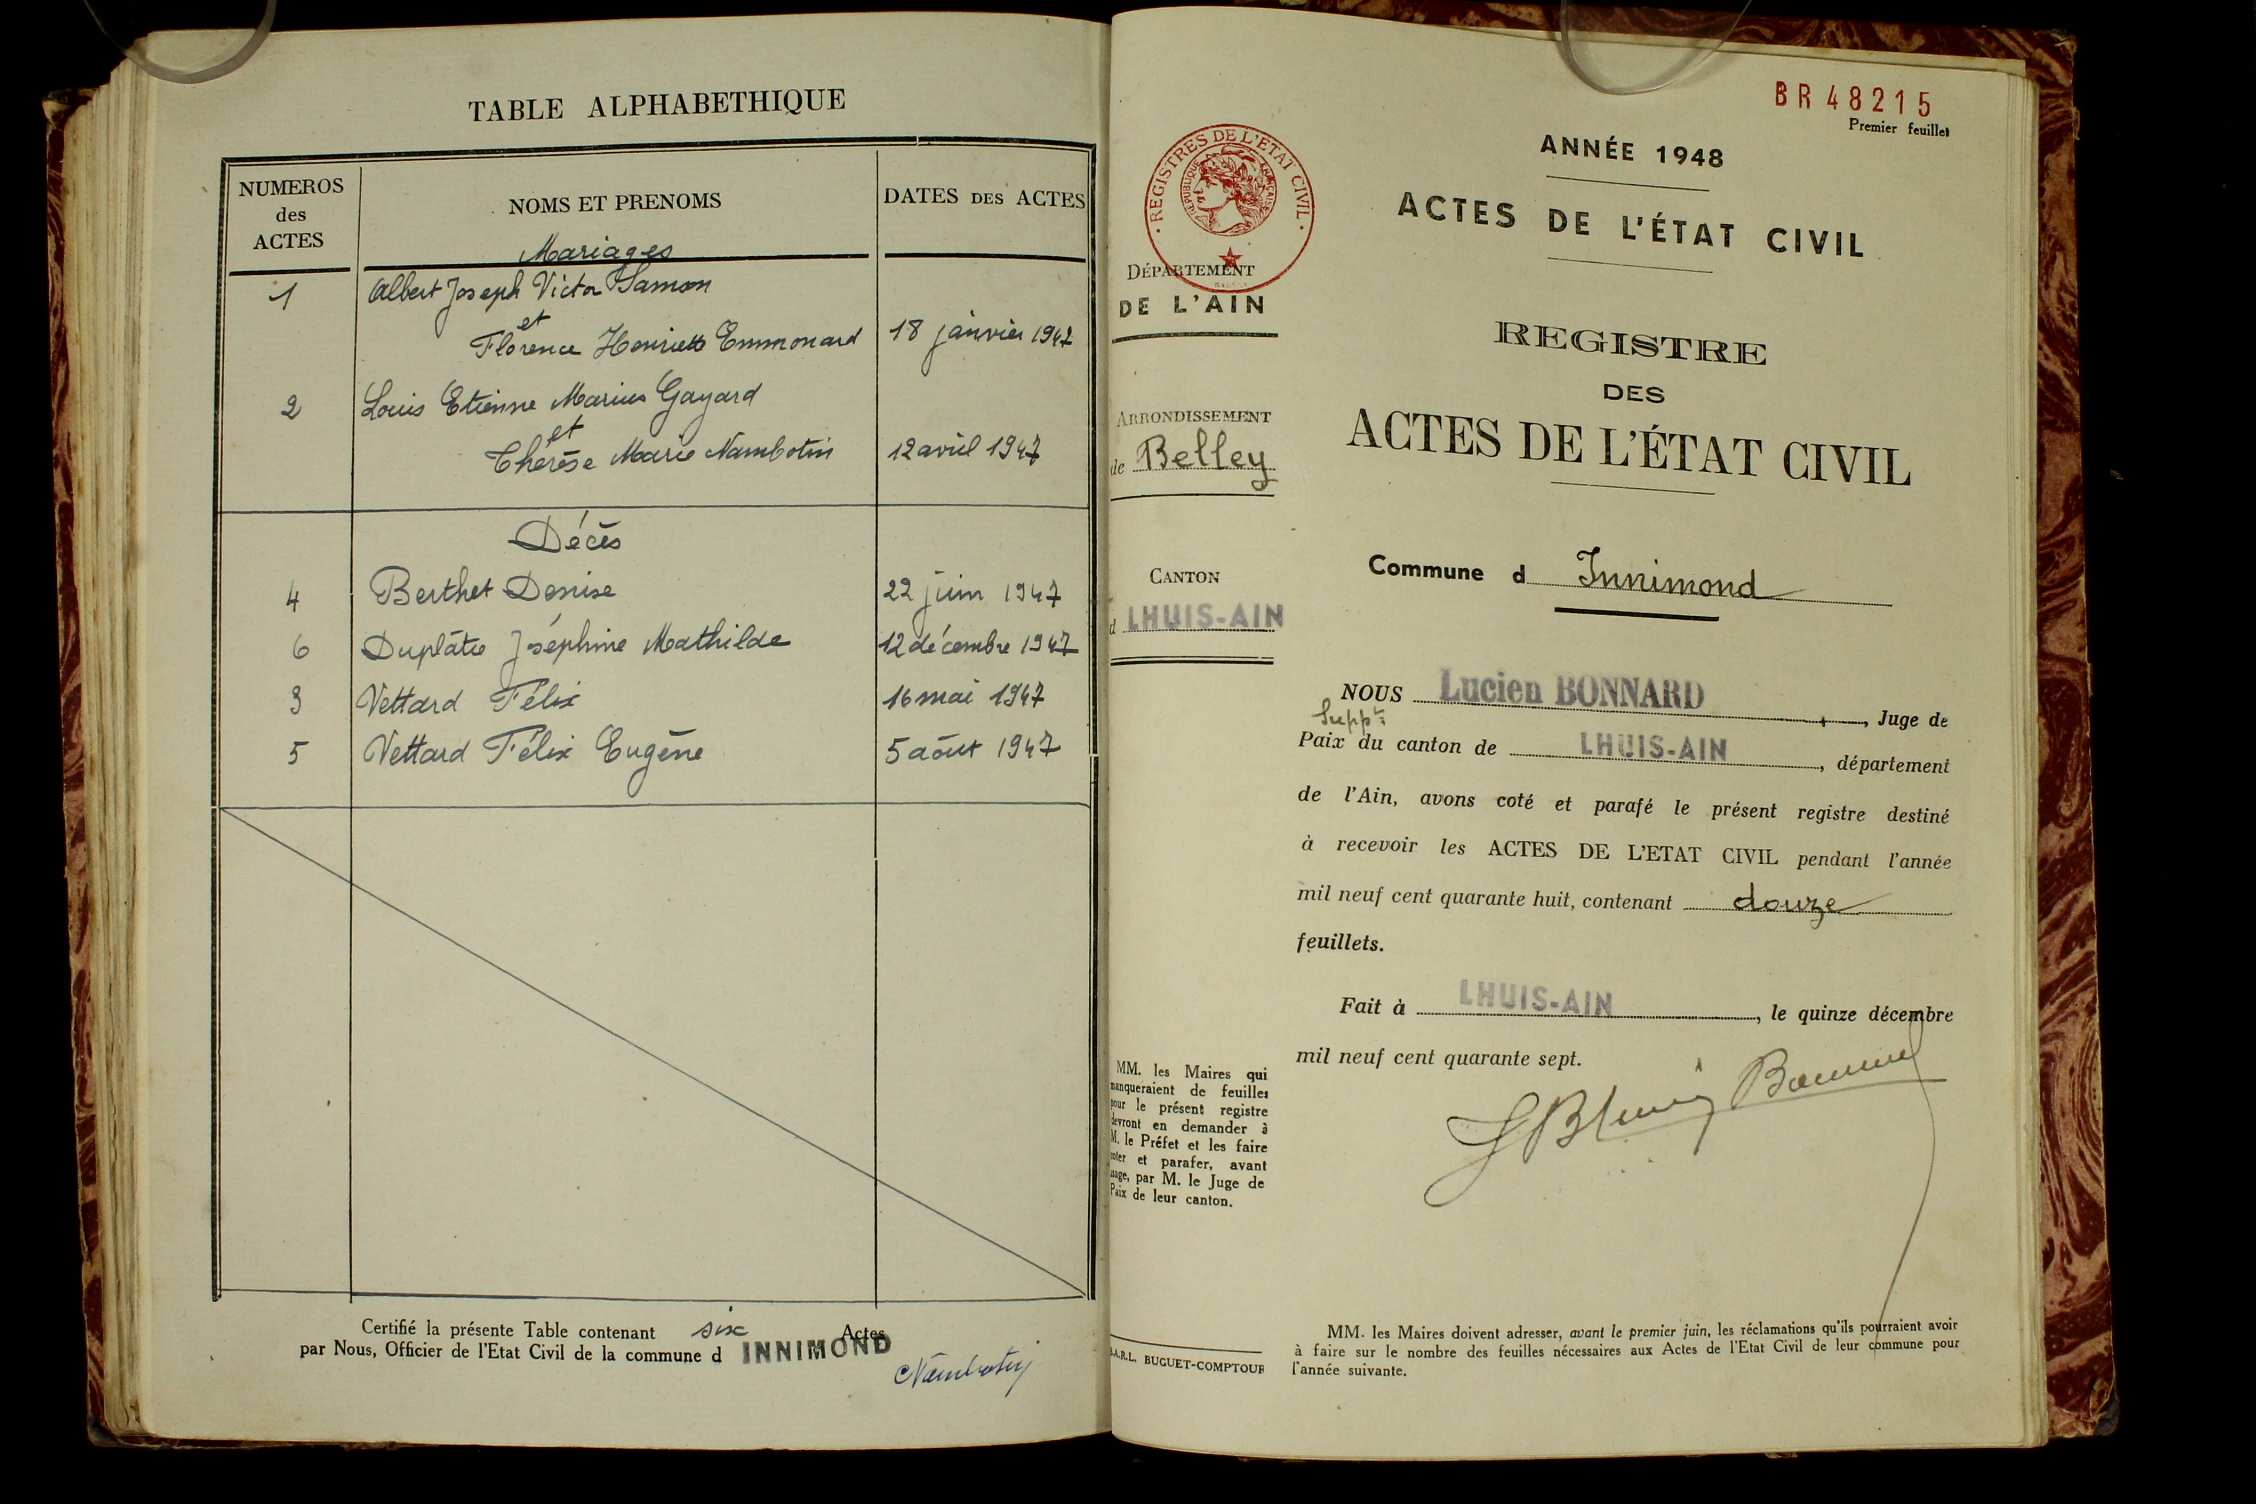 TABLE ALPHABETHIQUE
NUMEROS
des
ACTES
NOMS ET PRENOMS
DATES DES ACTES
Mariages
1 Albert Joseph Victor Samon
et
Florence Henriette Emmonard 18 janvier 1947
2 Louis Etienne Marius Gayard
et
Thérèse Marie Nambotin 12 avril 1947
Décès
4 Berthet Denise 22 juin 1947
6 Duplâtre Joséphine Mathilde 12 décembre 1947
3 Vettard Félix 16 mai 1947
5 Vettard Félix Eugène 5 aôut 1947
Certifié la présente Table contenant six Actes
par Nous, Officier de l'Etat Civil de la commune d INNIMOND
Nambotin
BR48215
Premier feuillet
REGISTRES DE L'ETAT CIVIL
REPUBLIQUE FRANÇAISE
DÉPARTEMENT
DE L'AIN
ARRONDISSEMENT
de Belley
CANTON
d LHUIS-AIN
MM. les Maires qui
manqueraient de feuilles
pour le présent registre
devront en demander à
M. le Préfet et les faire
coter et parafer, avant
usage, par M. le Juge de
Paix de leur canton.
S.A.R.L. BUGUET-COMPTOUR
ANNÉE 1948
ACTES DE L'ÉTAT CIVIL
REGISTRE
DES
ACTES DE L'ÉTAT CIVIL
Commune d Innimond
NOUS Lucien BONNARD, Juge de
Suppt
Paix du canton de LHUIS-AIN, département
de l'Ain, avons coté et parafé le présent registre destiné
à recevoir les ACTES DE L'ETAT CIVIL pendant l'année
mil neuf cent quarante huit, contenant douze
feuillets.
Fait à LHUIS-AIN, le quinze décembre
mil neuf cent quarante sept.
MM. les Maires doivent adresser, avant le premier juin, les réclamations qu'ils pourraient avoir
à faire sur le nombre des feuilles nécessaires aux Actes de l'Etat Civil de leur commune pour
l'année suivante.